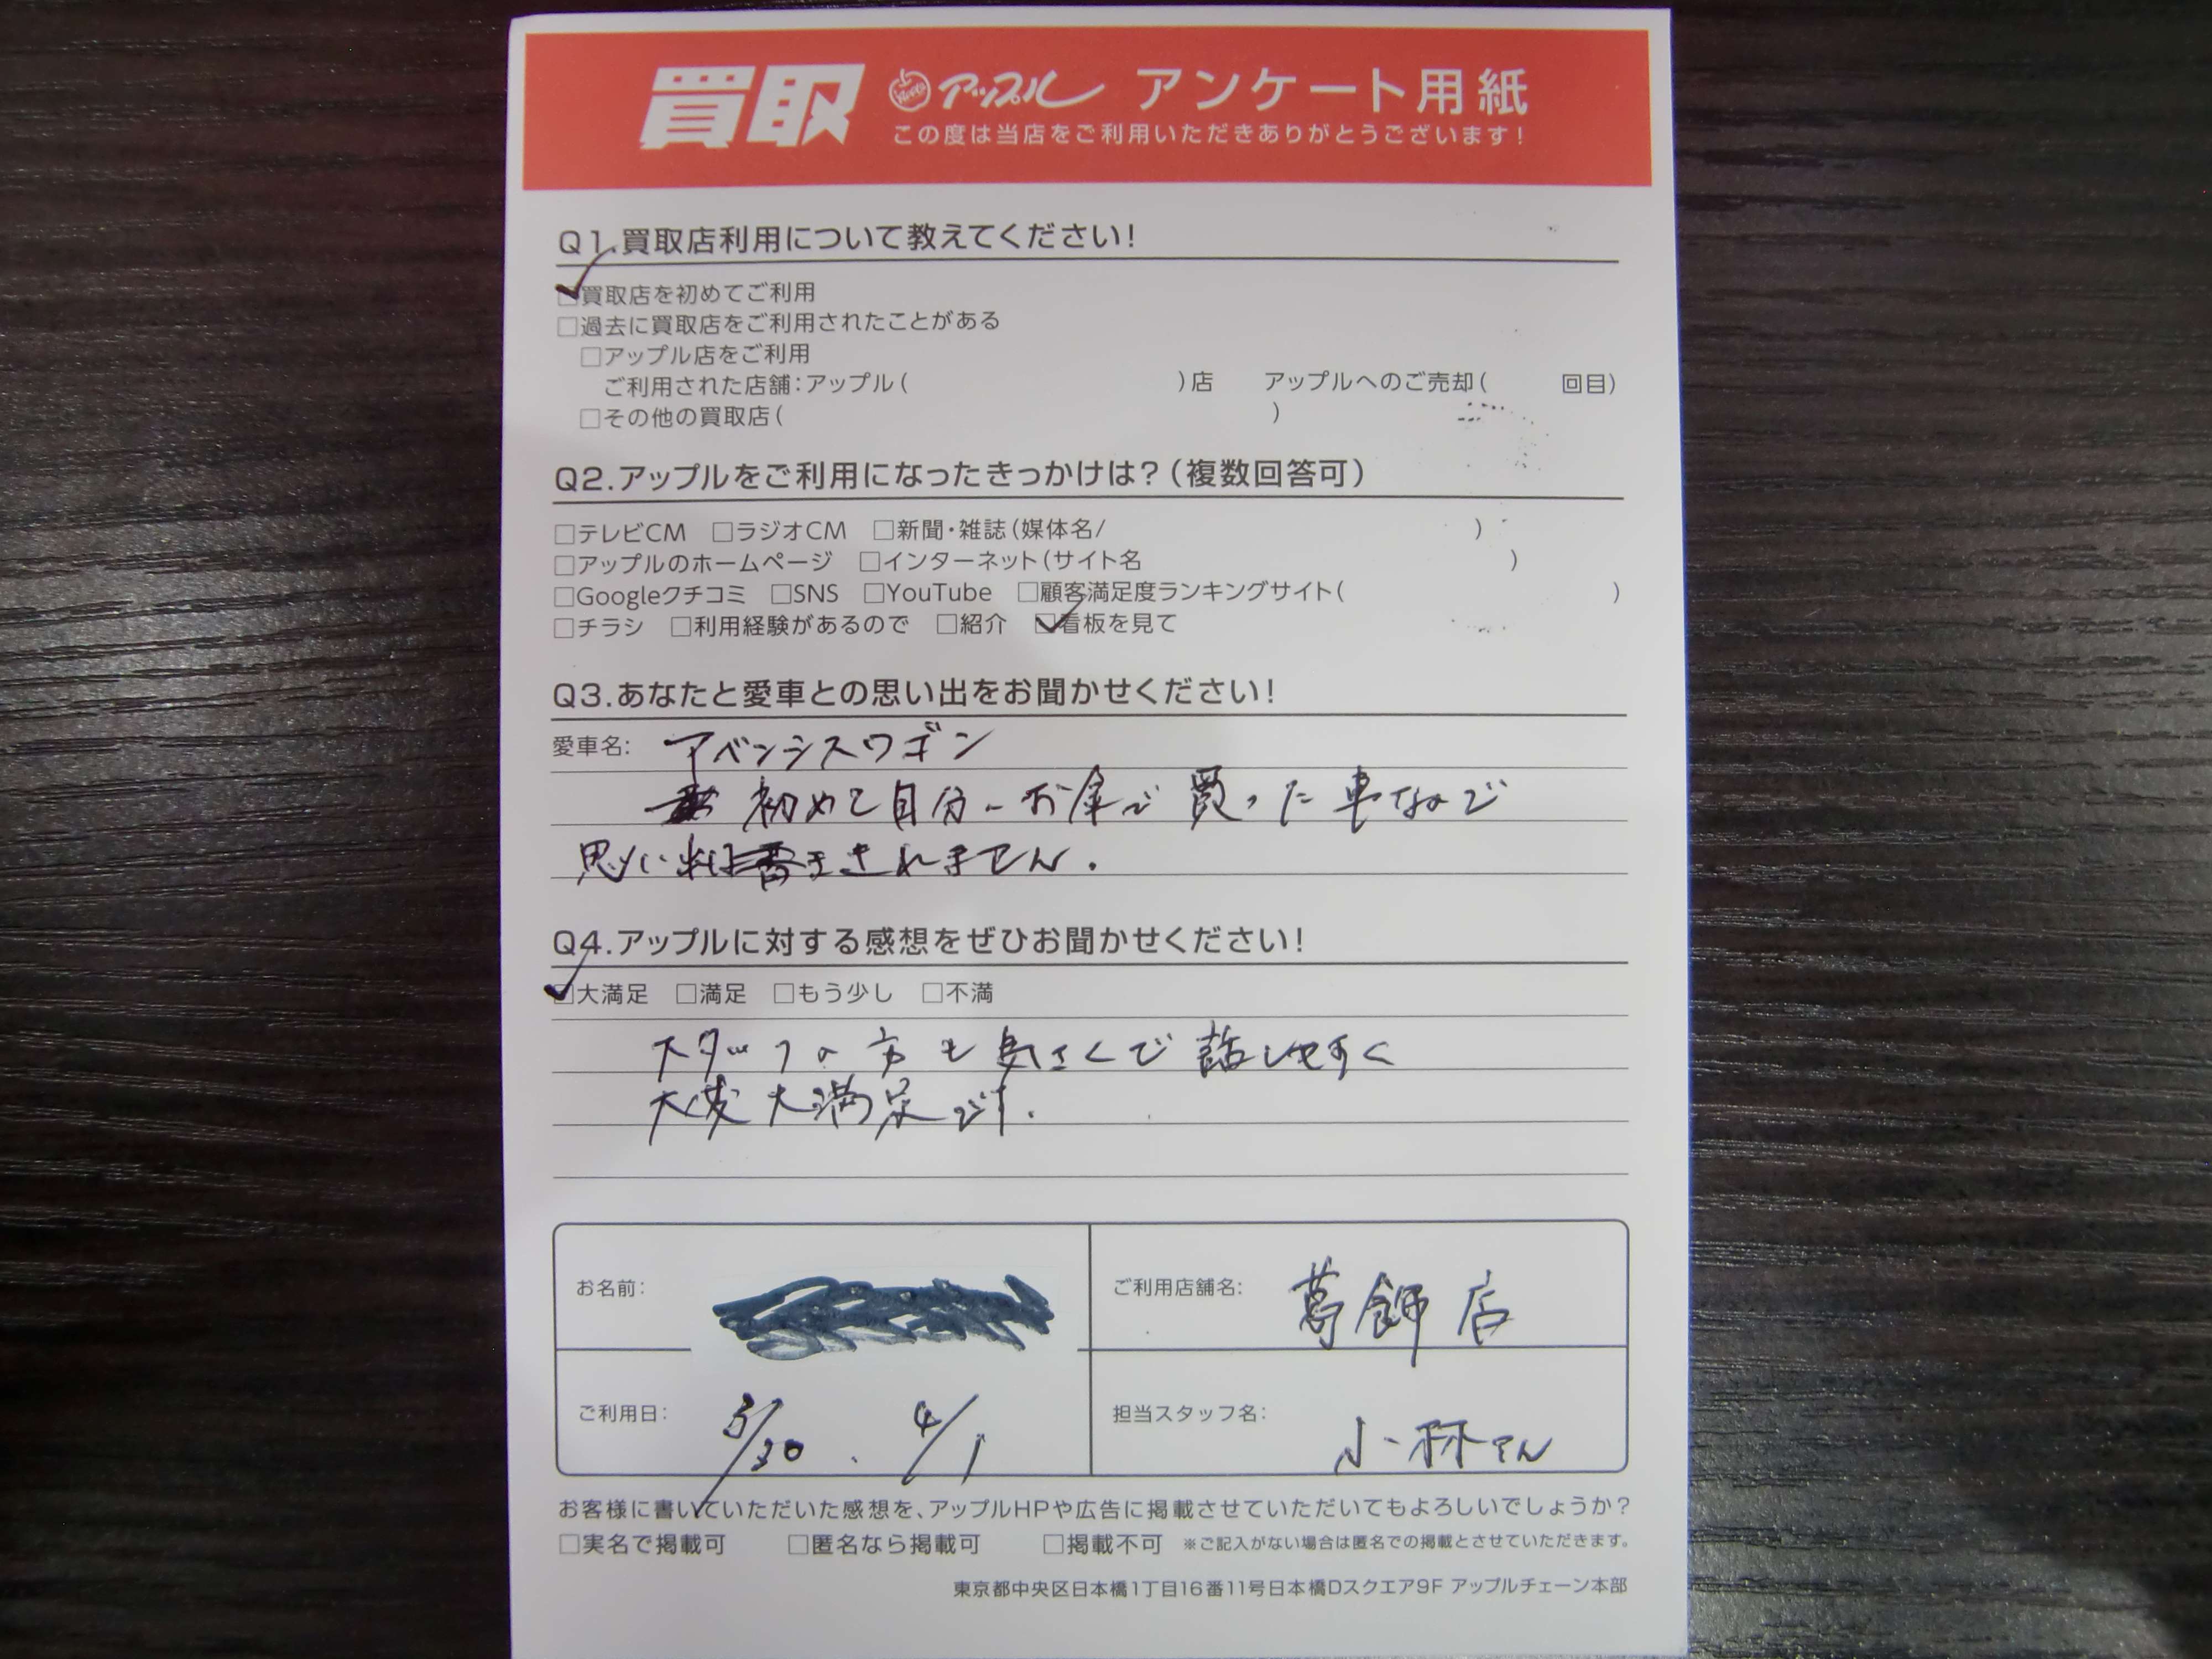 買取 アップル アンケート用紙
この度は当店をご利用いただきありがとうございます!
Q1.買取店利用について教えてください!
☑買取店を初めてご利用
□過去に買取店をご利用されたことがある
□アップル店をご利用
ご利用された店舗:アップル( )店 アップルへのご売却( 回目)
□その他の買取店( )
Q2.アップルをご利用になったきっかけは?(複数回答可)
□テレビCM □ラジオCM □新聞・雑誌(媒体名/ )
□アップルのホームページ □インターネット(サイト名 )
□Googleクチコミ □SNS □YouTube □顧客満足度ランキングサイト( )
□チラシ □利用経験があるので □紹介 ☑看板を見て
Q3.あなたと愛車との思い出をお聞かせください!
愛車名: アベンシスワゴン
初めて自分のお金で買った車なので
思い出は書ききれません.
Q4.アップルに対する感想をぜひお聞かせください!
☑大満足 □満足 □もう少し □不満
スタッフの方も気さくで話しやすく
大変大満足です.
お名前:
ご利用店舗名: 葛飾店
ご利用日: 3/30 . 4/1
担当スタッフ名: 小林さん
お客様に書いていただいた感想を、アップルHPや広告に掲載させていただいてもよろしいでしょうか?
□実名で掲載可 □匿名なら掲載可 □掲載不可 ※ご記入がない場合は匿名での掲載とさせていただきます。
東京都中央区日本橋1丁目16番11号日本橋Dスクエア9F アップルチェーン本部